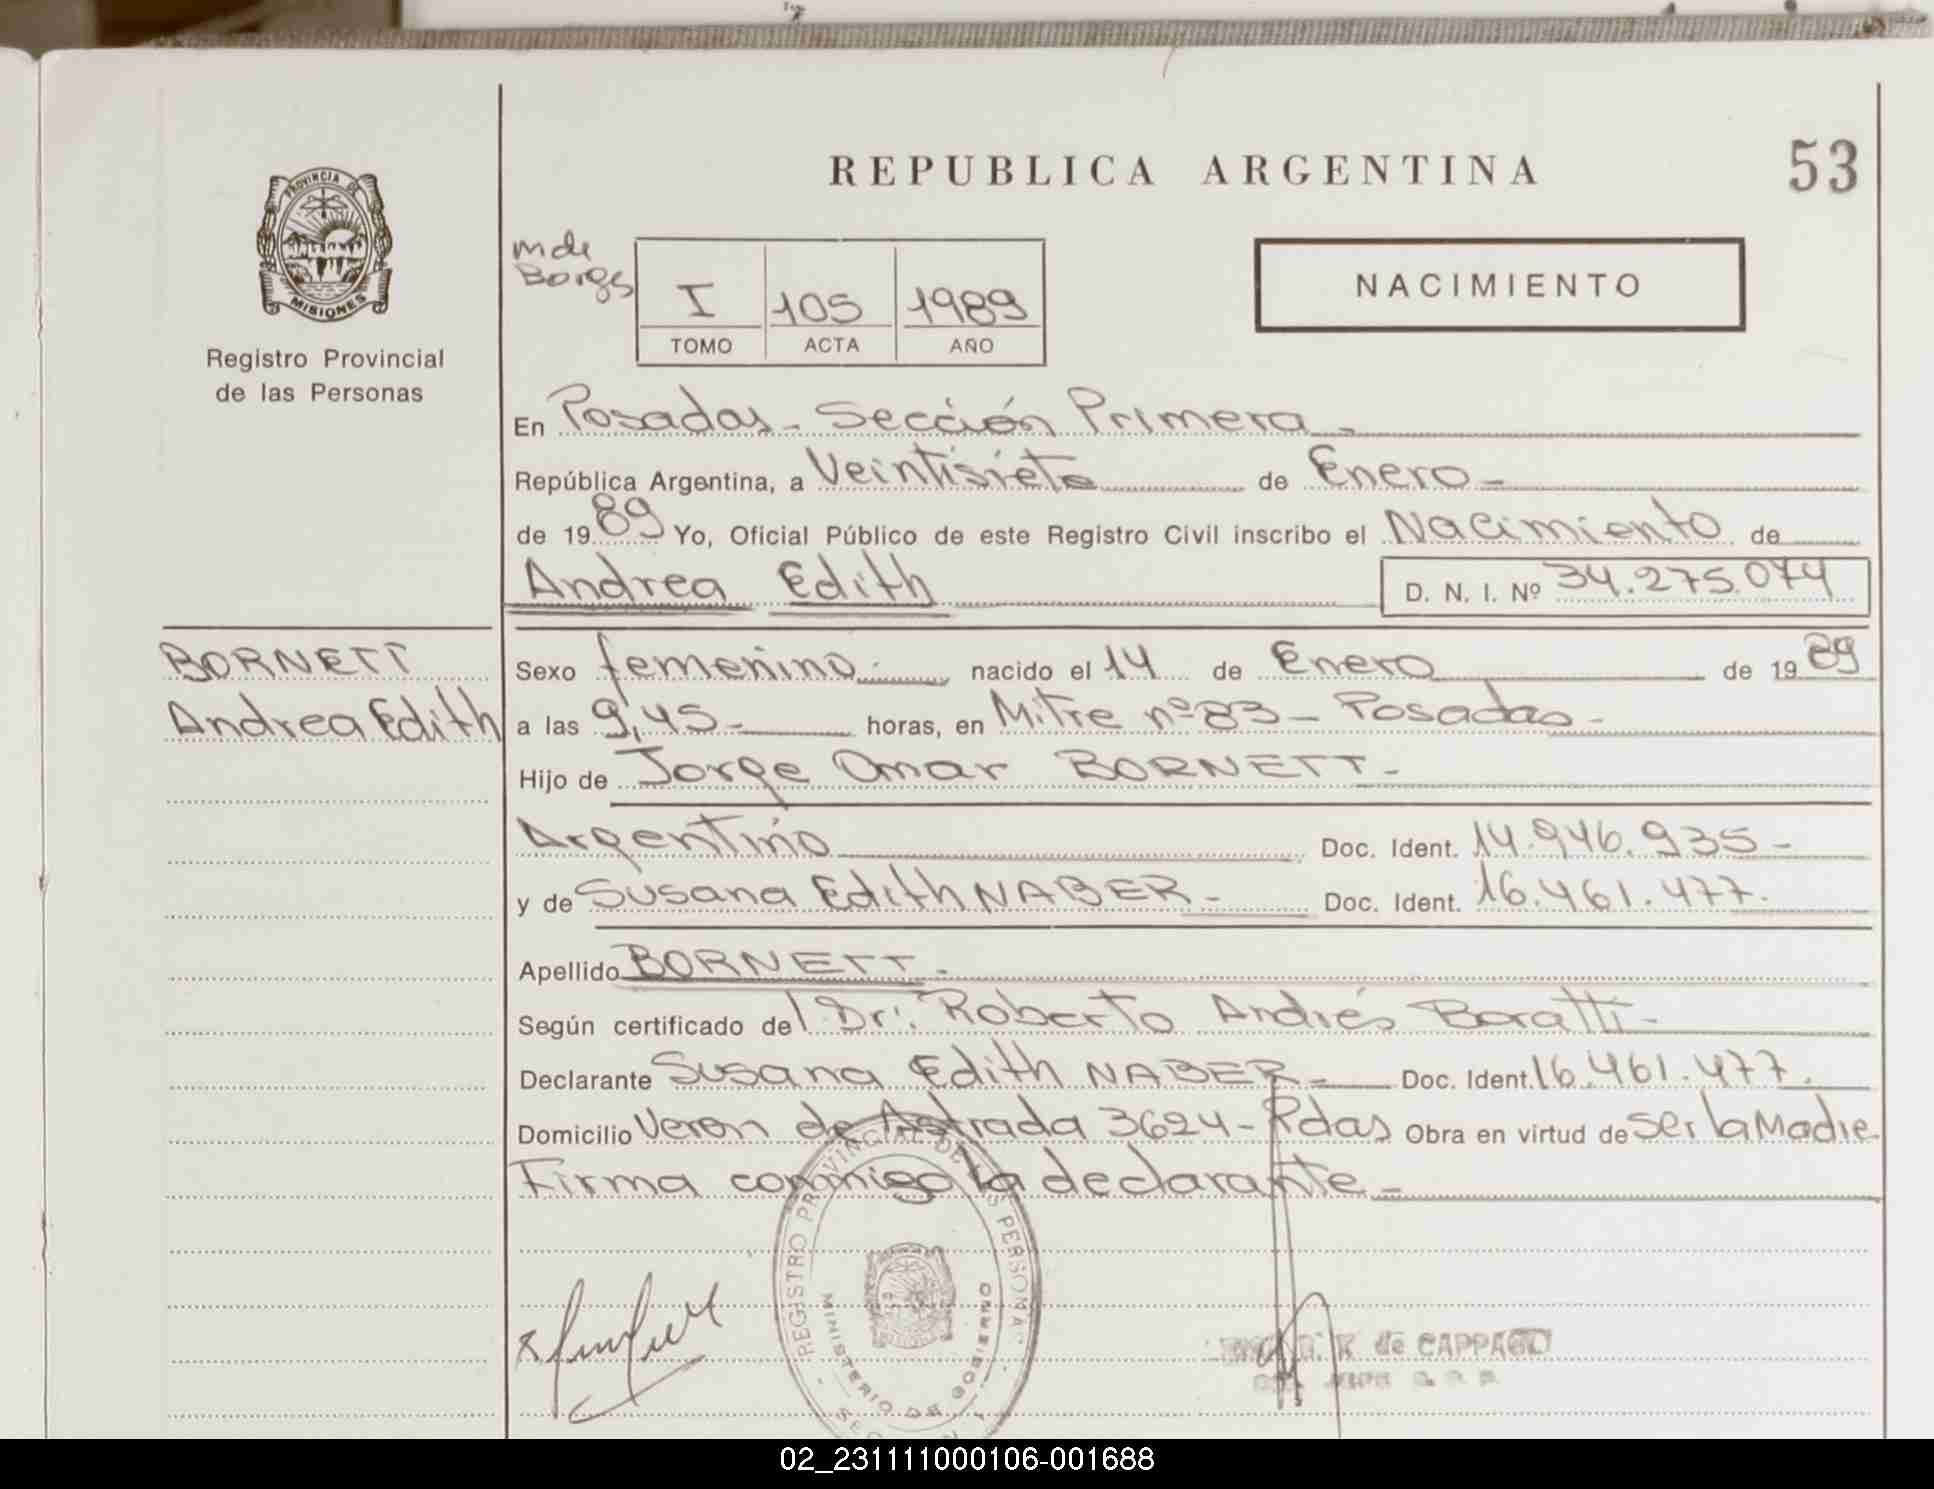 REPUBLICA ARGENTINA
53
PROVINCIA DE
MISIONES
Registro Provincial
de las Personas
m de
Borges
I 105 1989
TOMO ACTA AÑO
NACIMIENTO
En Posadas - Sección Primera -
República Argentina, a Veintisiete de Enero -
de 19 89 Yo, Oficial Público de este Registro Civil inscribo el Nacimiento de
Andrea Edith D. N. I. Nº 34.275.074
BORNETT
Andrea Edith
Sexo femenino.- nacido el 14 de Enero de 19 89
a las 9,45- horas, en Mitre nº 83 - Posadas -
Hijo de Jorge Omar BORNETT -
Argentino Doc. Ident. 14.946.935 -
y de Susana Edith NABER - Doc. Ident. 16.461.477.
Apellido BORNETT.
Según certificado del Dr: Roberto Andrés Boratti -
Declarante Susana Edith NABER - Doc. Ident. 16.461.477.
Domicilio Veron de Astrada 3624 - Pdas Obra en virtud de ser la Madre
Firma conmigo la declarante -
REGISTRO PROVINCIAL DE LAS PERSONAS
MINISTERIO DE GOBIERNO
de CAPPAGLI
02_231111000106-001688